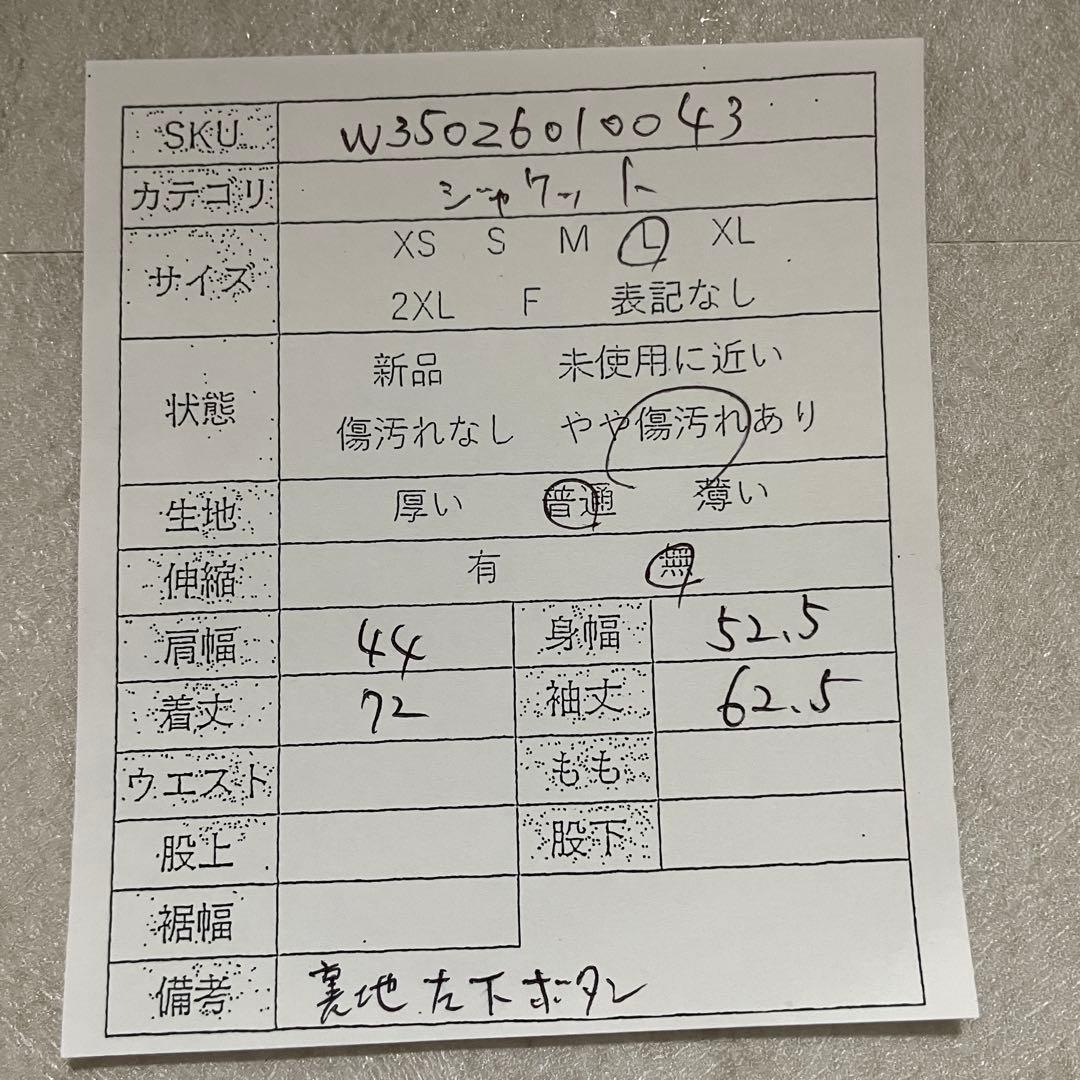 SKU W35026010043
カテゴリ ジャケット
サイズ XS S M L XL
2XL F 表記なし
状態 新品 未使用に近い
傷汚れなし やや傷汚れあり
生地 厚い 普通 薄い
伸縮 有 無
肩幅 44 身幅 52.5
着丈 72 袖丈 62.5
ウエスト もも
股上 股下
裾幅
備考 裏地左下ボタン